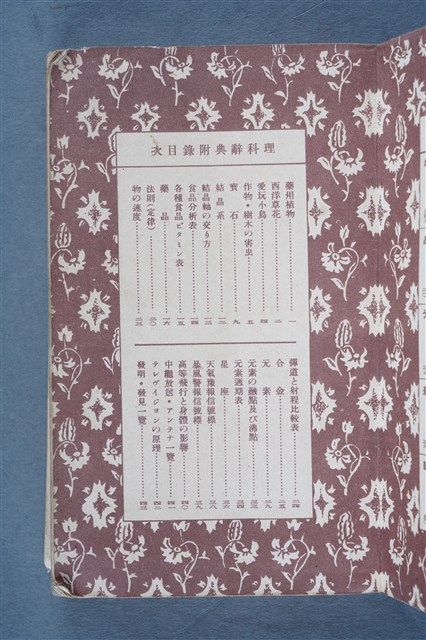 理科辭典附錄目次
藥用植物……一
西洋草花……二
愛玩小鳥……四
作物・樹木の害虫……五
寶石……九
結晶系……一二
結晶軸の交り方……一三
食品分析表……一四
各種食品ビタミン表……一五
藥品……一六
法則(定律)……二〇
物の速度……二三
彈道と射程比較表……二四
合金……二五
元素……二九
元素の融點及び沸點……三三
元素週期表……三四
星座……三六
天氣豫報信號標……三八
暴風警報信號標……三九
高等飛行と身體の影響……四〇
中繼放送・アンテナ一覽……四一
テレヴイジヨンの原理……四二
發明・發見一覽……四三